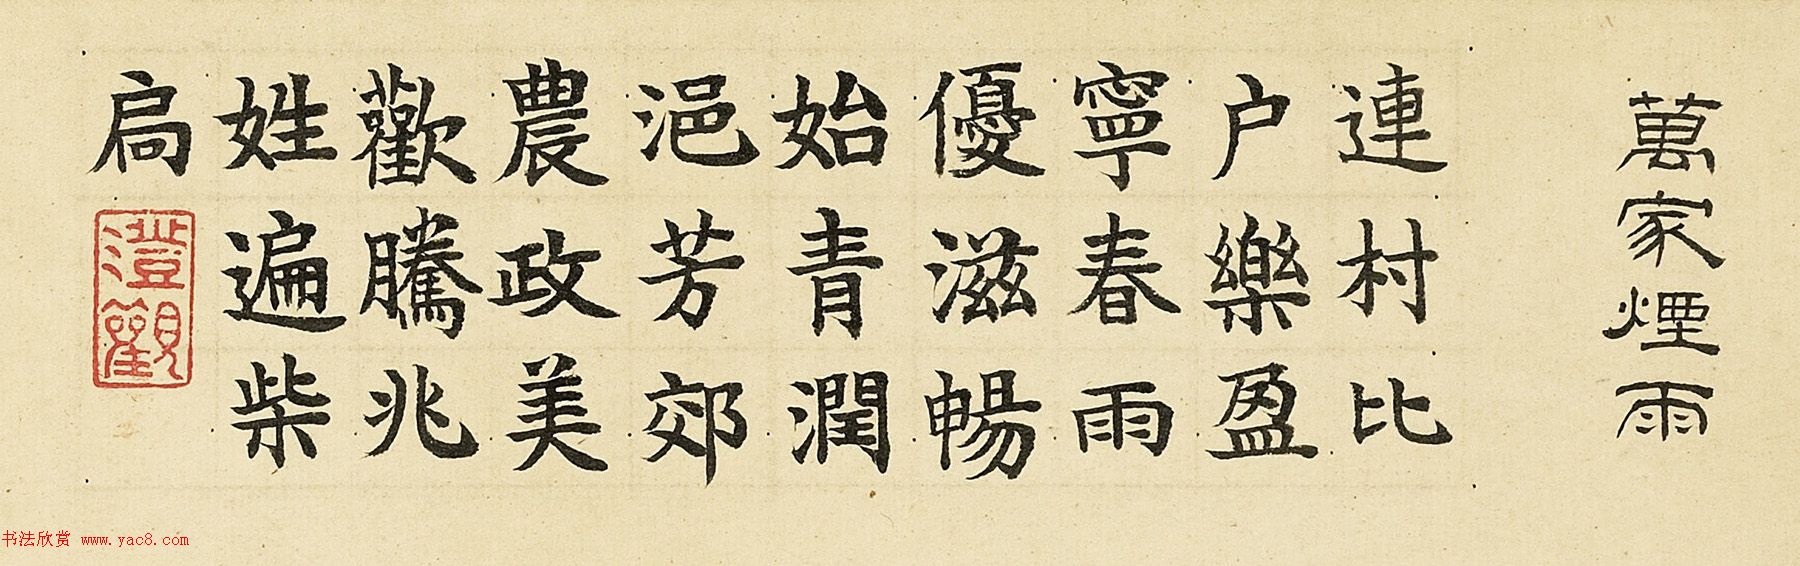 萬家煙雨
連村比
户樂盈
寧春雨
優滋暢
始青潤
浥芳郊
農政美
歡騰兆
姓遍柴
扃
澄觀
书法欣赏 www.yac8.com